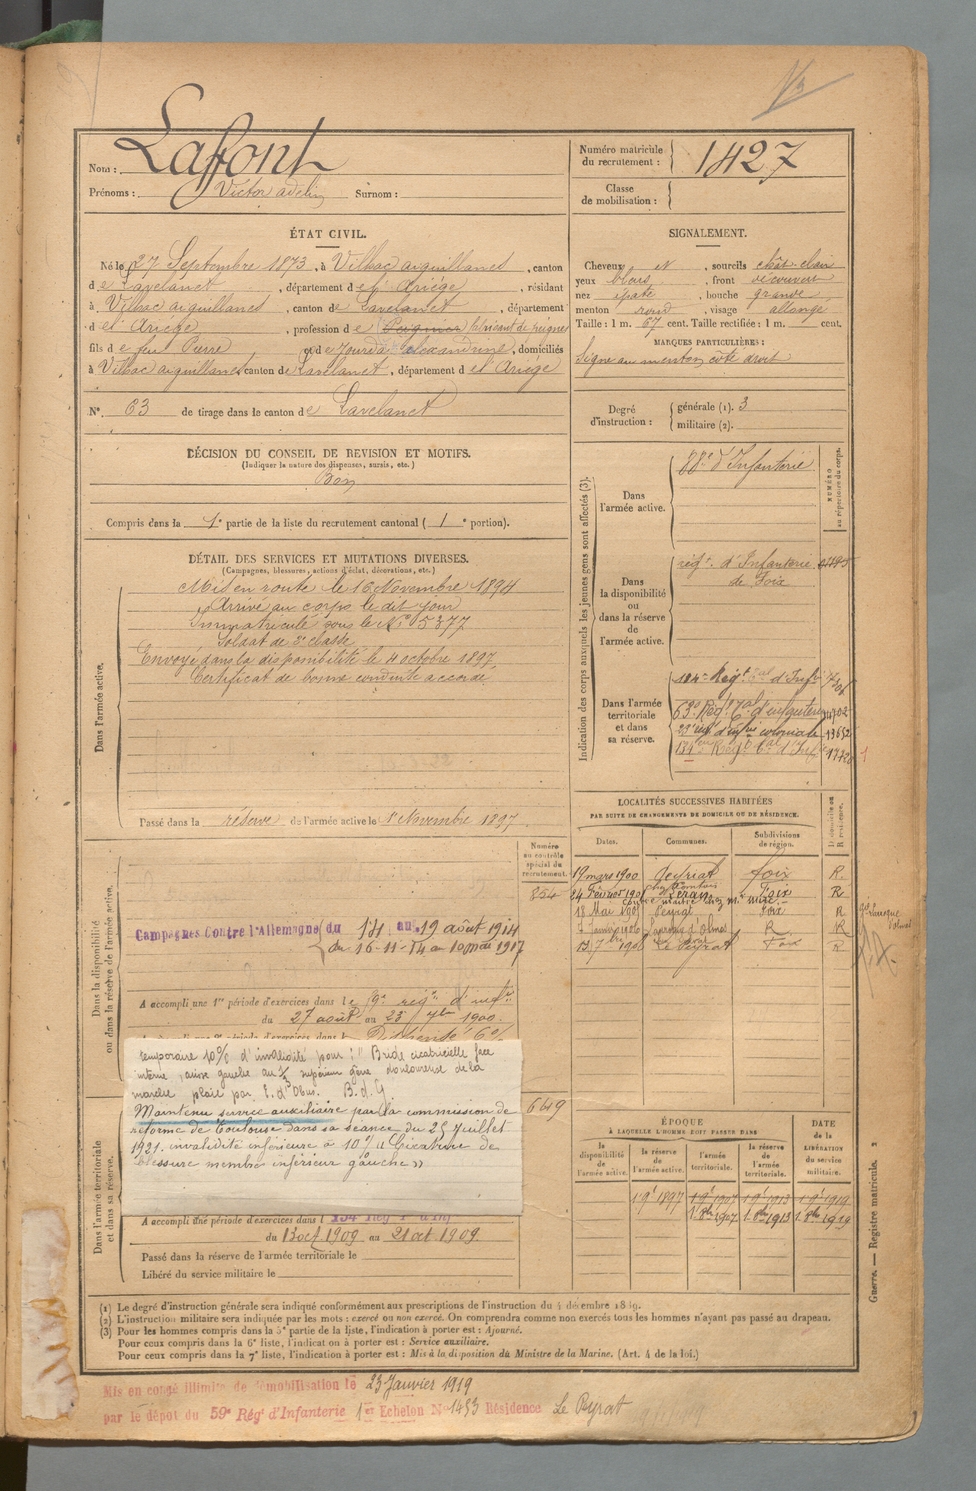 Nom : Laffont
Prénoms : Victor adelin Surnom :
Numéro matricule du recrutement : 1427
Classe de mobilisation :
ÉTAT CIVIL.
Né le 27 Septembre 1873, à Vilhac aiguillanes, canton
de Lavelanet, département de l'Ariège, résidant
à Vilhac aiguillanes, canton de Lavelanet, département
de l'Ariège, profession de Peigneur fabricant de peignes
fils de feu Pierre et de Jourda alexandrine, domiciliés
à Vilhac aiguillanes canton de Lavelanet, département de l'Ariège
N° 63 de tirage dans le canton de Lavelanet
SIGNALEMENT.
Cheveux et, sourcils chât. clair
yeux bleus, front découvert
nez épaté, bouche grande
menton rond, visage allongé
Taille : 1 m. 67 cent. Taille rectifiée : 1 m. cent.
MARQUES PARTICULIÈRES :
Signe au menton côté droit
Degré d'instruction : générale (1). 3
militaire (2).
DÉCISION DU CONSEIL DE REVISION ET MOTIFS.
(Indiquer la nature des dispenses, sursis, etc.)
Bon
Compris dans la 1e partie de la liste du recrutement cantonal (1e portion).
DÉTAIL DES SERVICES ET MUTATIONS DIVERSES.
(Campagnes, blessures, actions d'éclat, décorations, etc.)
Dans l'armée active.
Mis en route le 16 Novembre 1894
Arrivé au corps le dit jour
Immatriculé sous le N° 5377
Soldat de 2e classe
Envoyé dans la disponibilité le 4 octobre 1897
Certificat de bonne conduite accordé
Passé dans la réserve de l'armée active le 1er Novembre 1897
Indication des corps auxquels les jeunes gens sont affectés (3).
NUMÉRO au répertoire du corps.
Dans l'armée active.
88e d'Infanterie
Dans la disponibilité ou dans la réserve de l'armée active.
régt. d'Infanterie
de Foix
Dans l'armée territoriale et dans sa réserve.
134e Régt d'Inf.
63e Régt d'infanterie 4702
23e régt d'infie coloniale 13652
134eme Régt d'Inf.
LOCALITÉS SUCCESSIVES HABITÉES
PAR SUITE DE CHANGEMENTS DE DOMICILE OU DE RÉSIDENCE.
Dates. Communes. Subdivisions de région. D domicile ou R résidence.
19 mars 1900 Peyrat Foix R.
24 Février 1901 Léran Foix R
18 Mai 1905 Peyrat Foix R
Janvier 1906 Laroque d'Olmes R. R
1906 Le Peyrat Foix R
Numéro au contrôle spécial du recrutement.
854
Dans la disponibilité ou dans la réserve de l'armée active.
Campagnes Contre l'Allemagne du au 19 août 1914
du 16-11-14 au 10 mai 1917
A accompli une 1re période d'exercices dans le 59e régt d'infie
du 27 août au 23 7bre 1900.
temporaire 10% d'invalidité pour : "Bride cicatricielle face
interne, cuisse gauche au 1/3 supérieur gêne douloureuse de la
marche plaie par E. d'Obus. B. d. G.
Maintenu service auxiliaire par la commission de
réforme de Toulouse dans sa séance du 25 juillet
1921. invalidité inférieure à 10% "Cicatrice de
blessure membre inférieur gauche"
649
Dans l'armée territoriale et dans sa réserve.
A accompli une période d'exercices dans l 134 Régt
du 13 oct 1909 au 21 oct 1909.
Passé dans la réserve de l'armée territoriale le
Libéré du service militaire le
ÉPOQUE
A LAQUELLE L'HOMME DOIT PASSER DANS
DATE de la LIBÉRATION du service militaire.
la disponibilité de l'armée active. la réserve de l'armée active. l'armée territoriale. la réserve de l'armée territoriale.
1 9e 1897 1 9e 1907 1 9e 1913 1 9e 1919
1. 8bre 1907 1. 8bre 1913 1. 8bre 1919
(1) Le degré d'instruction générale sera indiqué conformément aux prescriptions de l'instruction du 4 décembre 1889.
(2) L'instruction militaire sera indiquée par les mots : exercé ou non exercé. On comprendra comme non exercés tous les hommes n'ayant pas passé au drapeau.
(3) Pour les hommes compris dans la 5e partie de la liste, l'indication à porter est : Ajourné.
Pour ceux compris dans la 6e liste, l'indication à porter est : Service auxiliaire.
Pour ceux compris dans la 7e liste, l'indication à porter est : Mis à la disposition du Ministre de la Marine. (Art. 4 de la loi.)
Guerre. — Registre matricule. 2
Mis en congé illimité de démobilisation le 23 Janvier 1919
par le dépôt du 59e Régt d'Infanterie 1er Echelon N° 1453 Résidence Le Peyrat